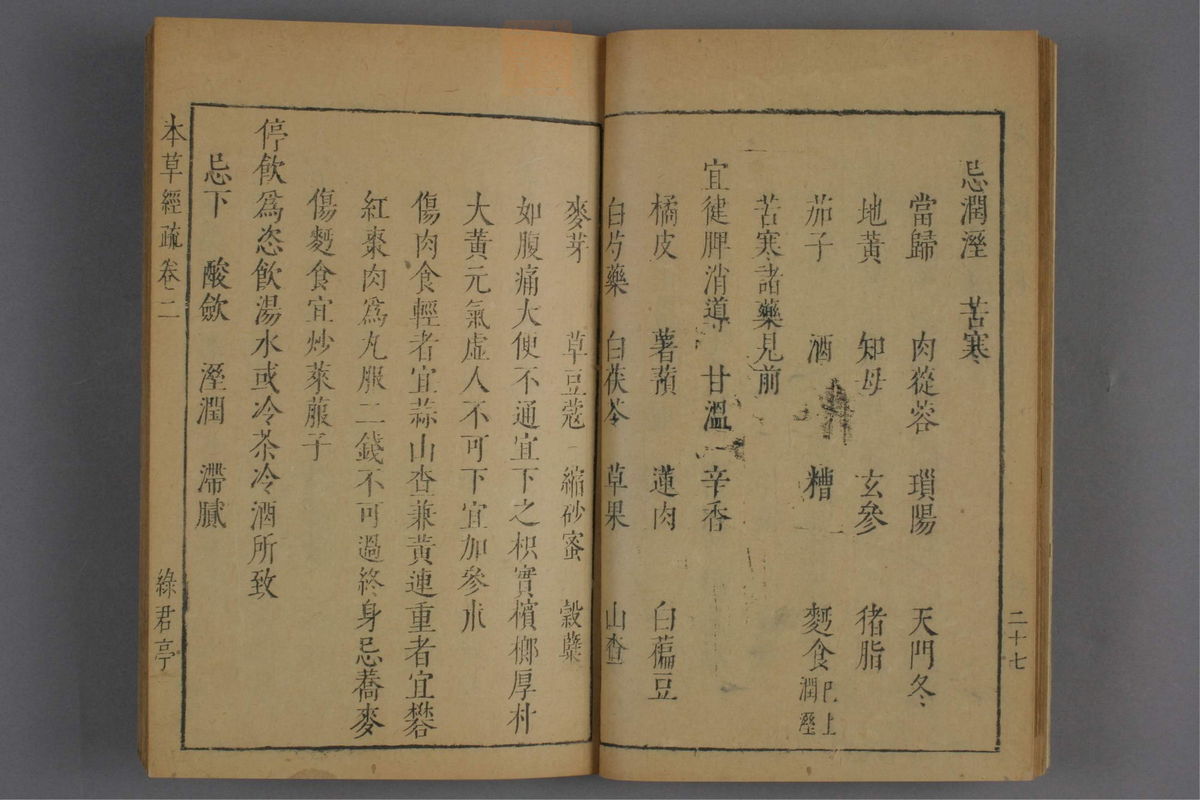 二十七
忌潤溼 苦寒
當歸 肉蓯蓉 瑣陽 天門冬
地黃 知母 玄參 猪脂
茄子 酒 糟 麪食 已上潤溼
苦寒諸藥見前
宜健脾消導 甘溫 辛香
橘皮 薯蕷 蓮肉 白藊豆
白芍藥 白茯苓 草果 山查
麥芽 草豆蔻 縮砂蜜 穀蘖
如腹痛大便不通宜下之枳實檳榔厚朴
大黃元氣虛人不可下宜加參朮
傷肉食輕者宜蒜山查兼黃連重者宜礬
紅棗肉爲丸服二錢不可過終身忌蕎麥
傷麪食宜炒萊菔子
停飲爲恣飲湯水或冷茶冷酒所致
忌下 酸斂 溼潤 滯膩
本草經疏 卷二 綠君亭